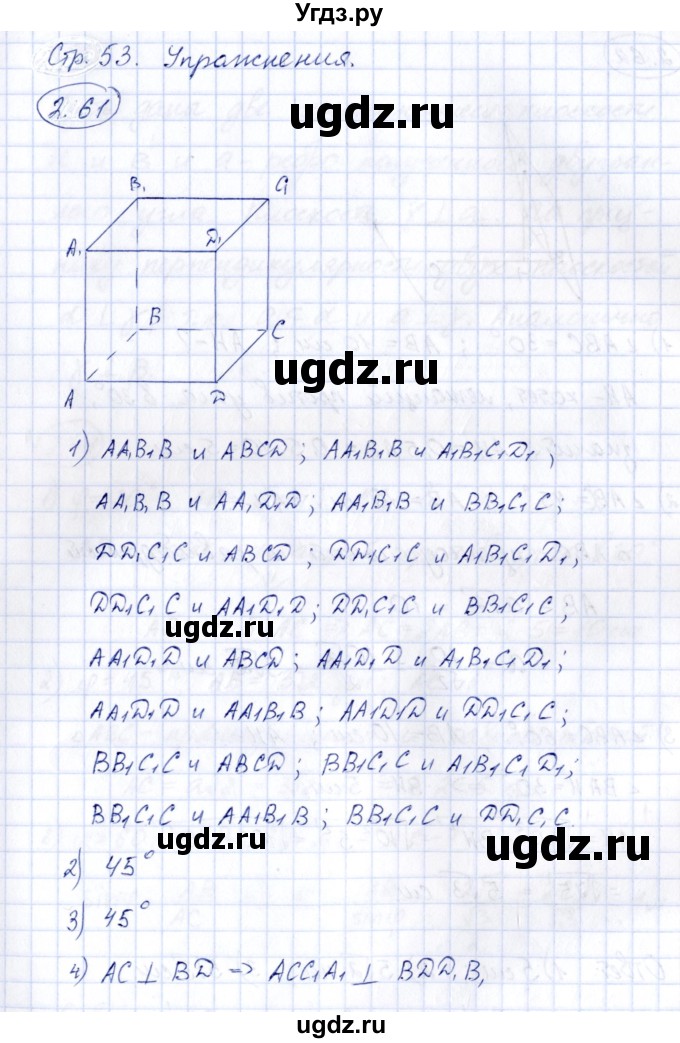 Угдз.ру
Стр. 53. Упражнения.
2.61
ugdz.ru
B₁ C₁
A₁ D₁
B
C
ugdz.ru
A D
1) AA₁B₁B и ABCD; AA₁B₁B и A₁B₁C₁D₁;
AA₁B₁B и AA₁D₁D; AA₁B₁B и BB₁C₁C;
DD₁C₁C и ABCD; DD₁C₁C и A₁B₁C₁D₁;
DD₁C₁C и AA₁D₁D; DD₁C₁C и BB₁C₁C;
ugdz.ru
AA₁D₁D и ABCD; AA₁D₁D и A₁B₁C₁D₁;
AA₁D₁D и AA₁B₁B; AA₁D₁D и DD₁C₁C;
BB₁C₁C и ABCD; BB₁C₁C и A₁B₁C₁D₁;
BB₁C₁C и AA₁B₁B; BB₁C₁C и DD₁C₁C.
ugdz.ru ugdz.ru
2) 45°
3) 45°
4) AC ⊥ BD ⇒ ACC₁A₁ ⊥ BDD₁B₁
ugdz.ru